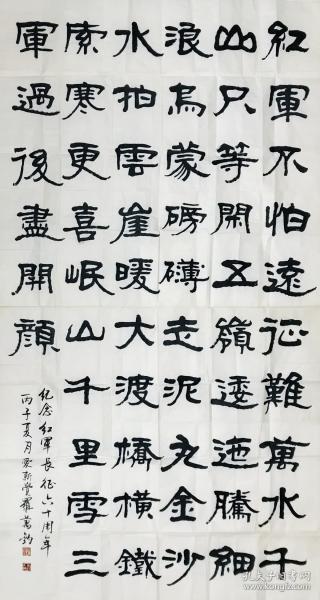 紅軍不怕遠征難萬水千
山只等閑五嶺逶迤騰細
浪烏蒙磅礴走泥丸金沙
水拍雲崖暖大渡橋橫鐵
索寒更喜岷山千里雪三
軍過後盡開顏
纪念红軍長征六十周年
丙子夏月爱新觉羅
孔夫子旧书网